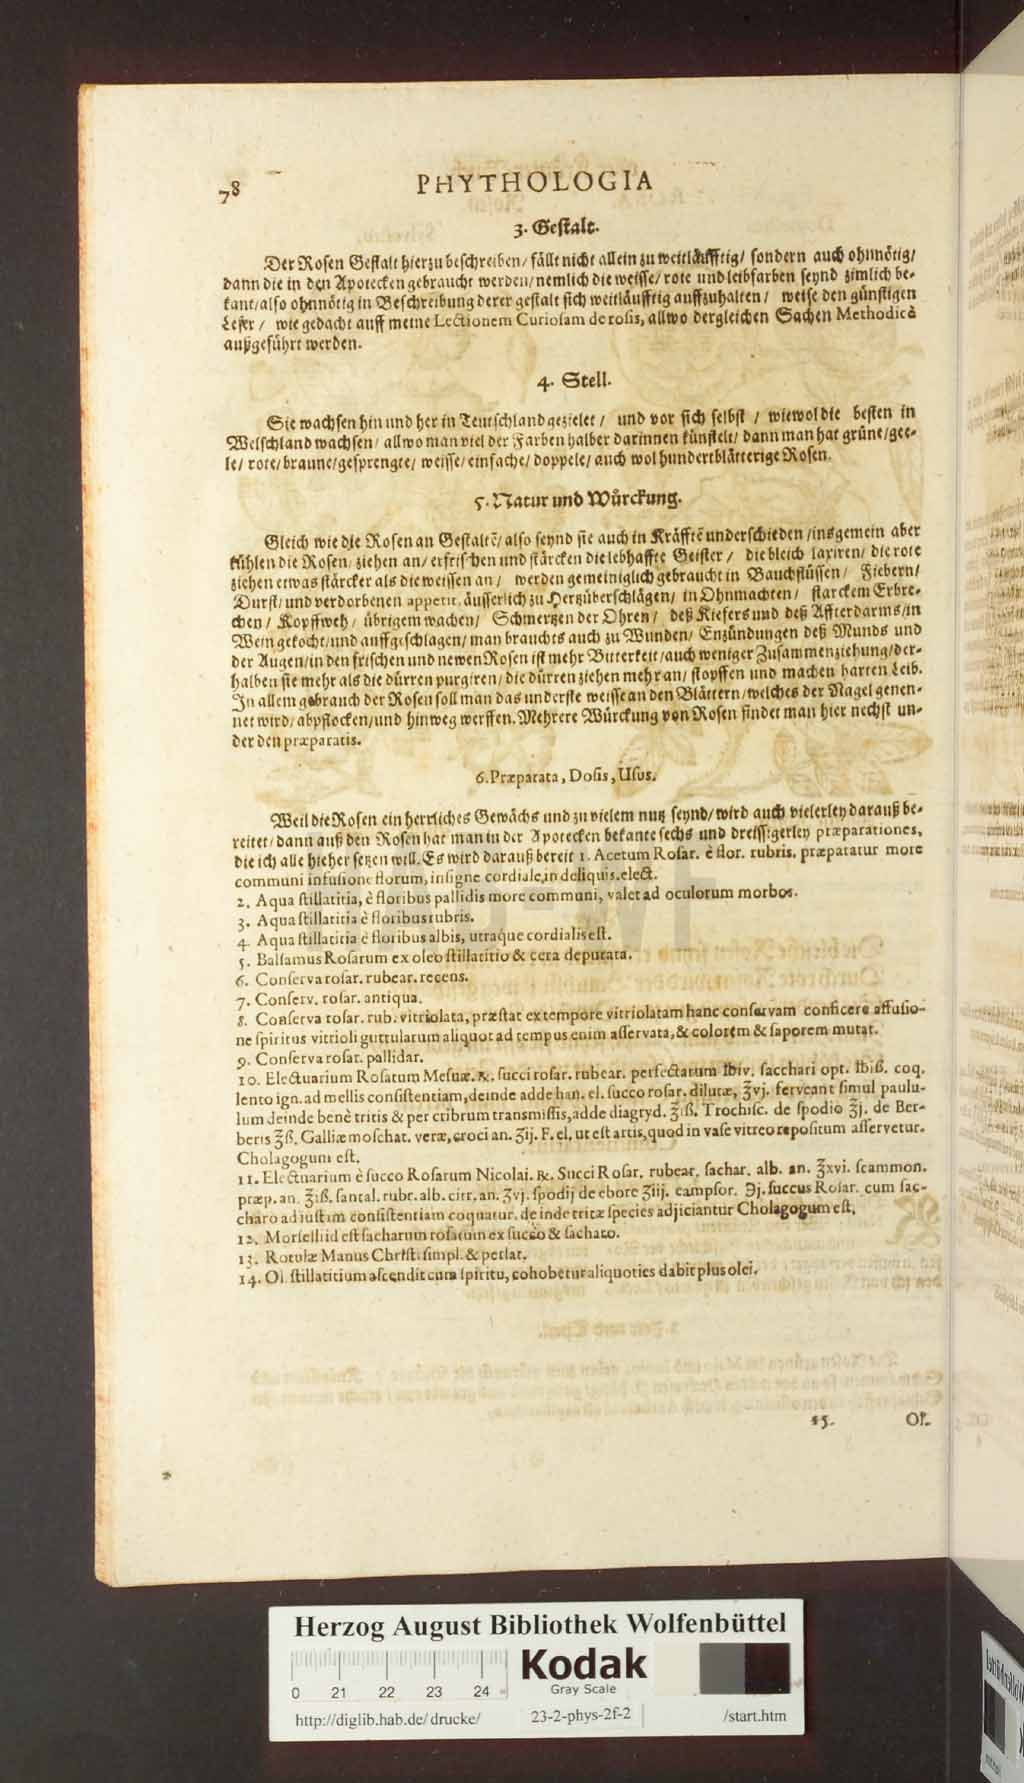 78 PHYTHOLOGIA
3. Gestalt.
Der Rosen Gestalt hierzu beschreiben / fällt nicht allein zu weitläufftig / sondern auch ohnnötig /
dann die in den Apotecken gebraucht werden / nemlich die weisse / rote und leibfarben seynd zimlich be-
kant / also ohnnötig in Beschreibung derer gestalt sich weitläufftig auffzuhalten / weise den günstigen
Leser / wie gedacht auff meine Lectionem Curiosam de rosis, allwo dergleichen Sachen Methodicè
außgeführt werden.
4. Stell.
Sie wachsen hin und her in Teutschland gezielet / und vor sich selbst / wiewol die besten in
Welschland wachsen / allwo man viel der Farben halber darinnen künstelt / dann man hat grüne / gee-
le / rote / braune / gesprengte / weisse / einfache / doppele / auch wol hundertblätterige Rosen.
5. Natur und Würckung.
Gleich wie die Rosen an Gestaltē / also seynd sie auch in Kräfftē underschieden / insgemein aber
kühlen die Rosen / ziehen an / erfrischen und stärcken die lebhaffte Geister / die bleich laxiren / die rote
ziehen etwas stärcker als die weissen an / werden gemeiniglich gebraucht in Bauchflüssen / Fiebern /
Durst / und verdorbenen appetit, äusserlich zu Hertzüberschlägen / in Ohnmachten / starckem Erbre-
chen / Kopffweh / übrigem wachen / Schmertzen der Ohren / deß Kiefers und deß Affterdarms / in
Wein gekocht / und auffgeschlagen / man brauchts auch zu Wunden / Enzündungen deß Munds und
der Augen / in den frischen und newen Rosen ist mehr Bitterkeit / auch weniger Zusammenziehung / der-
halben sie mehr als die dürren purgiren / die dürren ziehen mehr an / stopffen und machen harten Leib.
In allem gebrauch der Rosen soll man das underste weisse an den Blättern / welches der Nagel genen-
net wird / abpflocken / und hinweg werffen. Mehrere Würckung von Rosen findet man hier nechst un-
der den præparatis.
6. Præparata, Dosis, Usus.
Weil die Rosen ein herrliches Gewächs und zu vielem nutz seynd / wird auch vielerley darauß be-
reitet / dann auß den Rosen hat man in der Apotecken bekante sechs und dreissigerley præparationes,
die ich alle hieher setzen will. Es wird darauß bereit 1. Acetum Rosar. è flor. rubris. præparatur more
communi infusione florum, insigne cordiale, in deliquis. elect.
2. Aqua stillatitia, è floribus pallidis more communi, valet ad oculorum morbos.
3. Aqua stillatitia è floribus rubris.
4. Aqua stillatitia è floribus albis, utraque cordialis est.
5. Balsamus Rosarum ex oleo stillatitio & cera depurata.
6. Conserva rosar. rubear. recens.
7. Conserv. rosar. antiqua.
8. Conserva rosar. rub. vitriolata, præstat extempore vitriolatam hanc conservam conficere affusio-
ne spiritus vitrioli guttularum aliquot ad tempus enim asservata, & colorem & saporem mutat.
9. Conserva rosar. pallidar.
10. Electuarium Rosatum Mesuæ. ℞. succi rosar. rubear. perfectarum ℔iv. sacchari opt. ℔iß. coq.
lento ign. ad mellis consistentiam, deinde adde han. el. succo rosar. dilutæ, ℥vj. ferveant simul paulu-
lum deinde benè tritis & per cribrum transmissis, adde diagryd. ℥iß. Trochisc. de spodio ℥j. de Ber-
beris ℥ß. Galliæ moschat. veræ, croci an. ʒij. F. el. ut est artis, quod in vase vitreo repositum asservetur.
Cholagogum est.
11. Electuarium è succo Rosarum Nicolai. ℞. Succi Rosar. rubear. sachar. alb. an. ℥xvi. scammon.
præp. an. ℥iß. santal. rubr. alb. citr. an. ʒvj. spodij de ebore ʒiij. campfor. ℈j. succus Rosar. cum sac-
charo ad iustam consistentiam coquatur, deinde tritæ species adjiciantur Cholagogum est.
12. Morselli id est sacharum rosatum ex succo & sacharo.
13. Rotulæ Manus Christi simpl. & perlat.
14. Ol. stillatitium ascendit cum spiritu, cohobetur aliquoties dabit plus olei.
15. Ol.
Herzog August Bibliothek Wolfenbüttel
Kodak
Gray Scale
0 21 22 23 24
http://diglib.hab.de/drucke/ 23-2-phys-2f-2 /start.htm